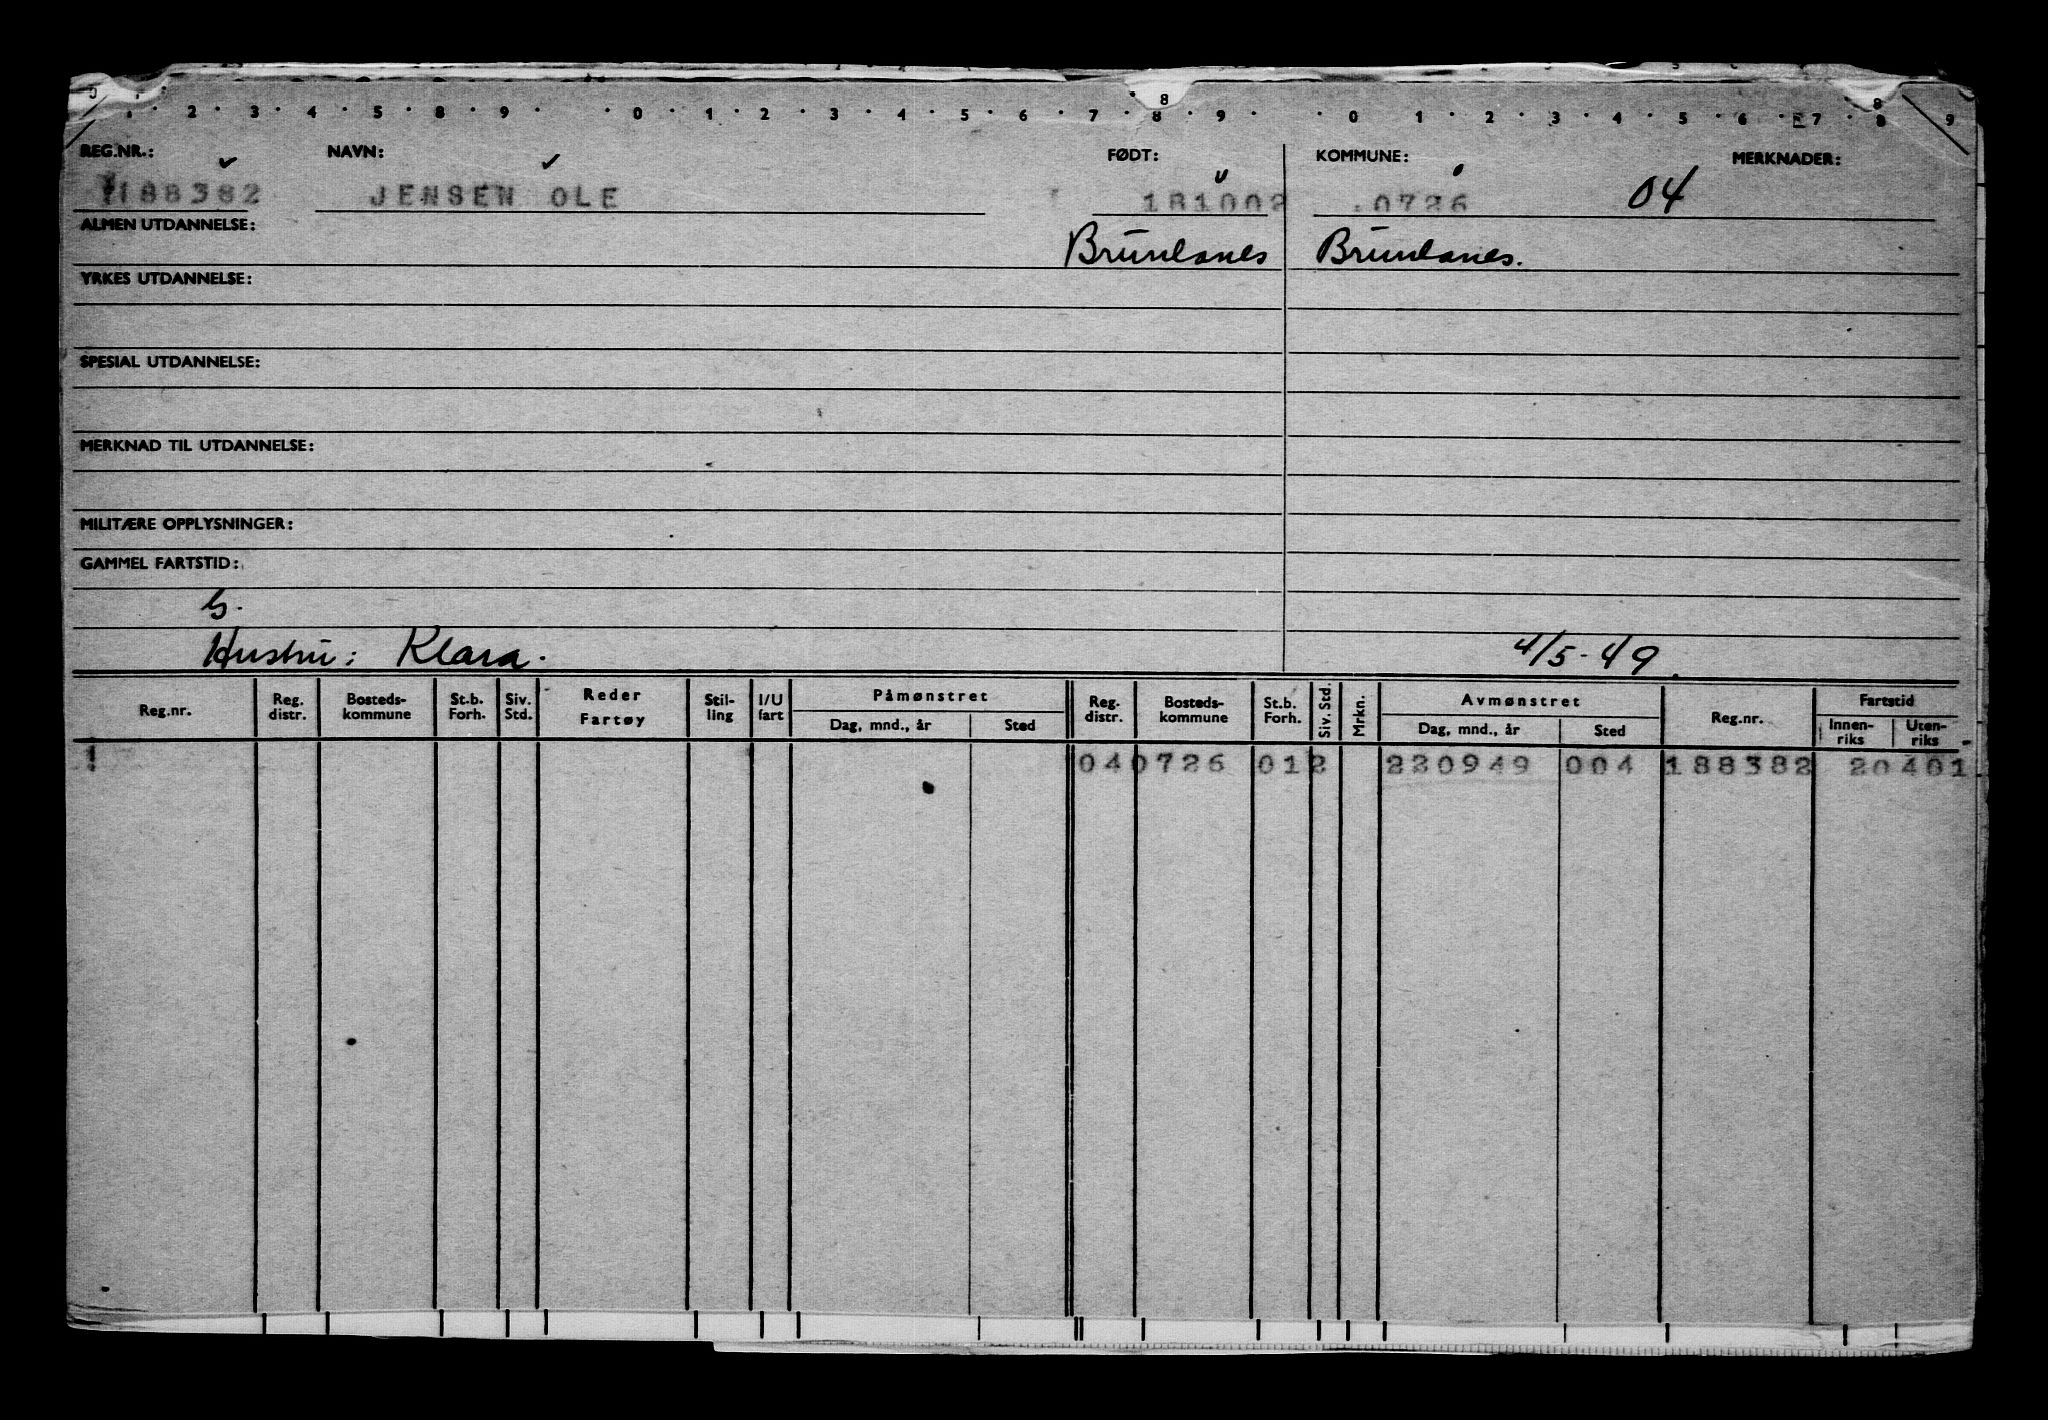 1 2 3 4 5 8 9 0 1 2 3 4 5 6 7 8 9 0 1 2 3 4 5 6 7 8 9
REG.NR.: NAVN: FØDT: KOMMUNE: MERKNADER:
188382 JENSEN OLE 181002 0726 04
ALMEN UTDANNELSE: Brunlanes Brunlanes.
YRKES UTDANNELSE:
SPESIAL UTDANNELSE:
MERKNAD TIL UTDANNELSE:
MILITÆRE OPPLYSNINGER:
GAMMEL FARTSTID:
G.
Hustru: Klara. 4/5-49.
Reg.nr. Reg. distr. Bosteds-kommune St.b. Forh. Siv. Std. Reder Fartøy Stil-ling I/U fart Påmønstret Dag, mnd., år Sted Reg. distr. Bosteds-kommune St.b. Forh. Siv. Std. Mrkn. Avmønstret Dag, mnd., år Sted Reg.nr. Fartstid Innen-riks Uten-riks
040726 012 220949 004 188382 20401